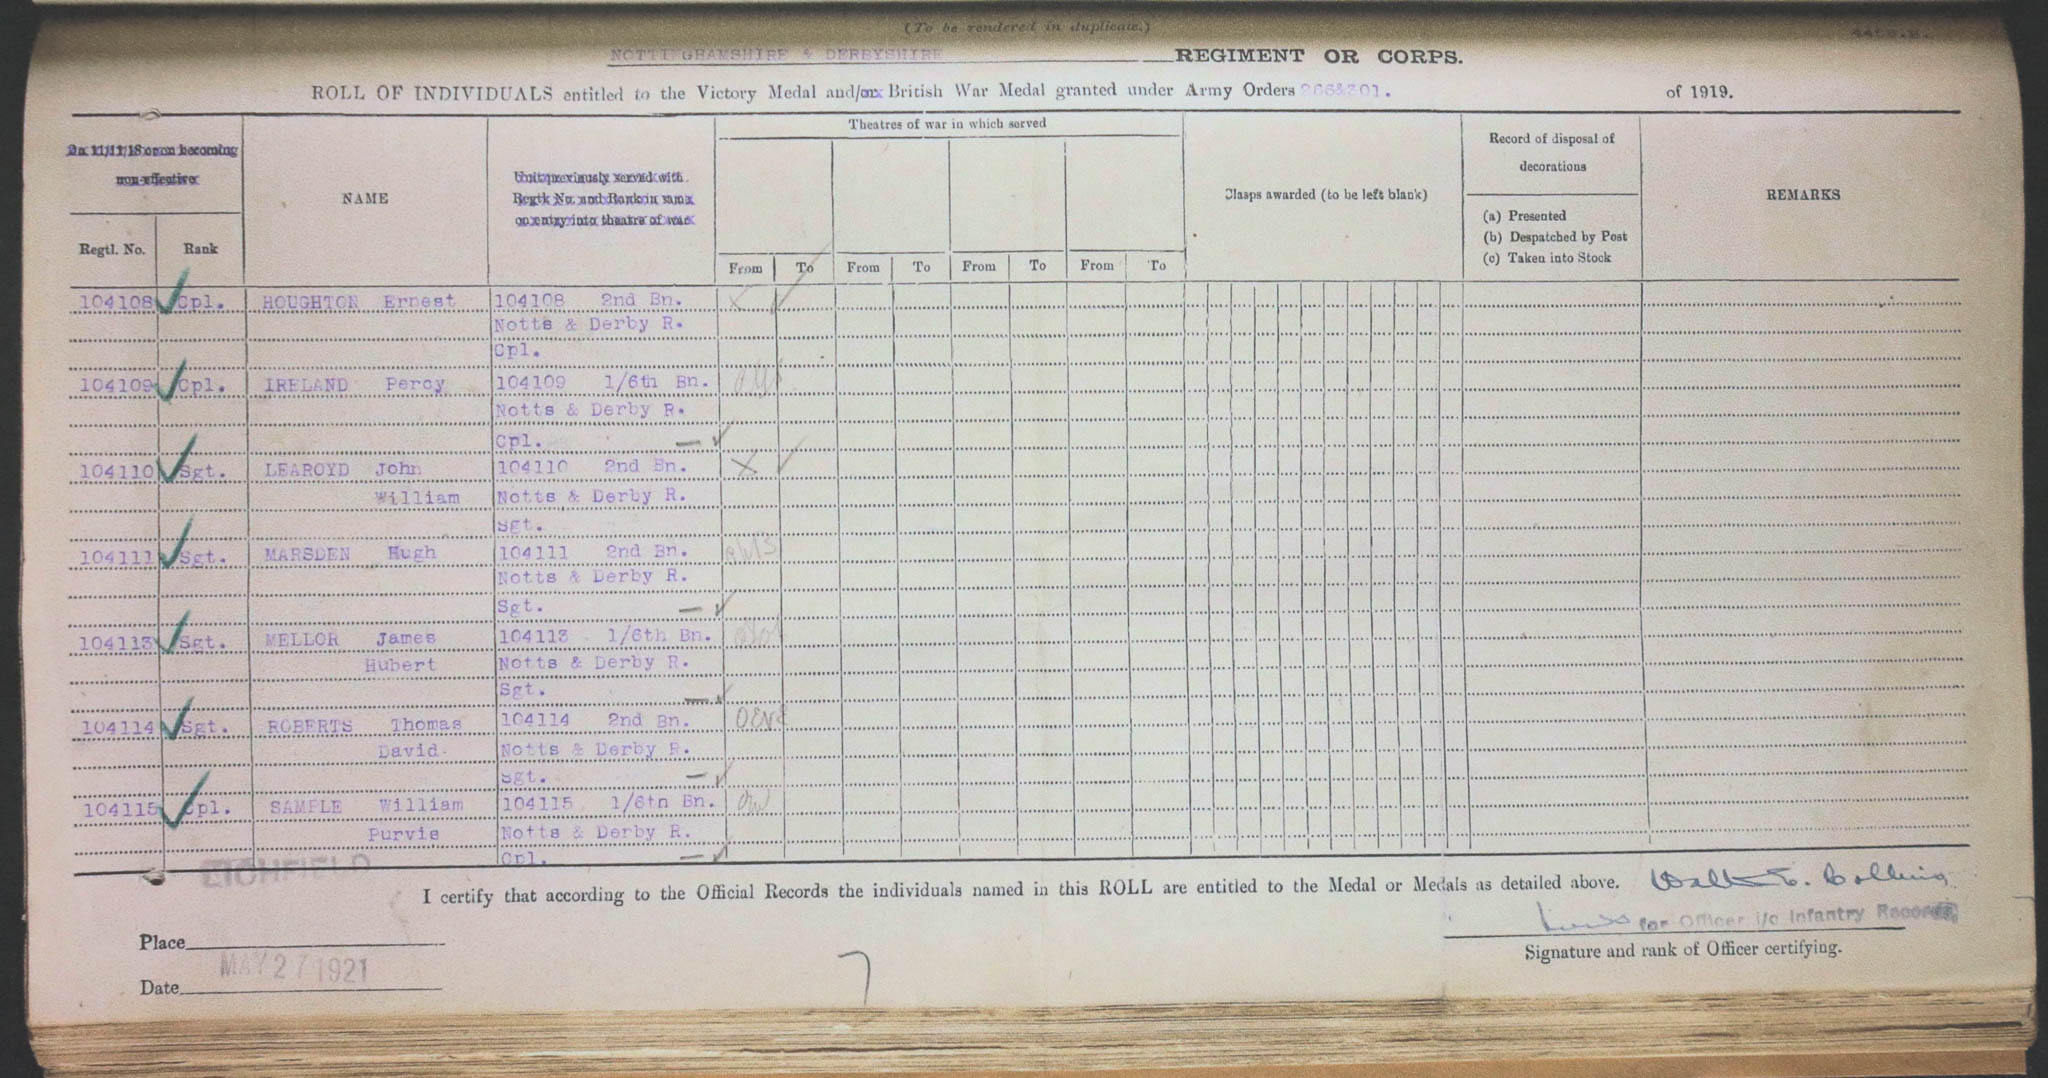 (To be rendered in duplicate.)
NOTTINGHAMSHIRE & DERBYSHIRE REGIMENT OR CORPS.
ROLL OF INDIVIDUALS entitled to the Victory Medal and/or British War Medal granted under Army Orders 266&301. of 1919.
Theatres of war in which served
On 11/11/18 or on becoming non-effective
NAME
Unit previously served with. Regtl. No. and Rank in same on entry into theatre of war
Clasps awarded (to be left blank)
Record of disposal of decorations
REMARKS
(a) Presented
(b) Despatched by Post
(c) Taken into Stock
Regtl. No. Rank
From To From To From To From To
104108 Cpl. HOUGHTON Ernest 104108 2nd Bn. X
Notts & Derby R.
Cpl.
104109 Cpl. IRELAND Percy 104109 1/6th Bn.
Notts & Derby R.
Cpl.
104110 Sgt. LEAROYD John 104110 2nd Bn. X
William Notts & Derby R.
Sgt.
104111 Sgt. MARSDEN Hugh 104111 2nd Bn.
Notts & Derby R.
Sgt.
104113 Sgt. MELLOR James 104113 1/6th Bn.
Hubert Notts & Derby R.
Sgt.
104114 Sgt. ROBERTS Thomas 104114 2nd Bn.
David Notts & Derby R.
Sgt.
104115 Cpl. SAMPLE William 104115 1/6th Bn.
Purvis Notts & Derby R.
Cpl.
LICHFIELD
I certify that according to the Official Records the individuals named in this ROLL are entitled to the Medal or Medals as detailed above.
for Officer i/c Infantry Records
Place
Signature and rank of Officer certifying.
MAY 27 1921
Date
7